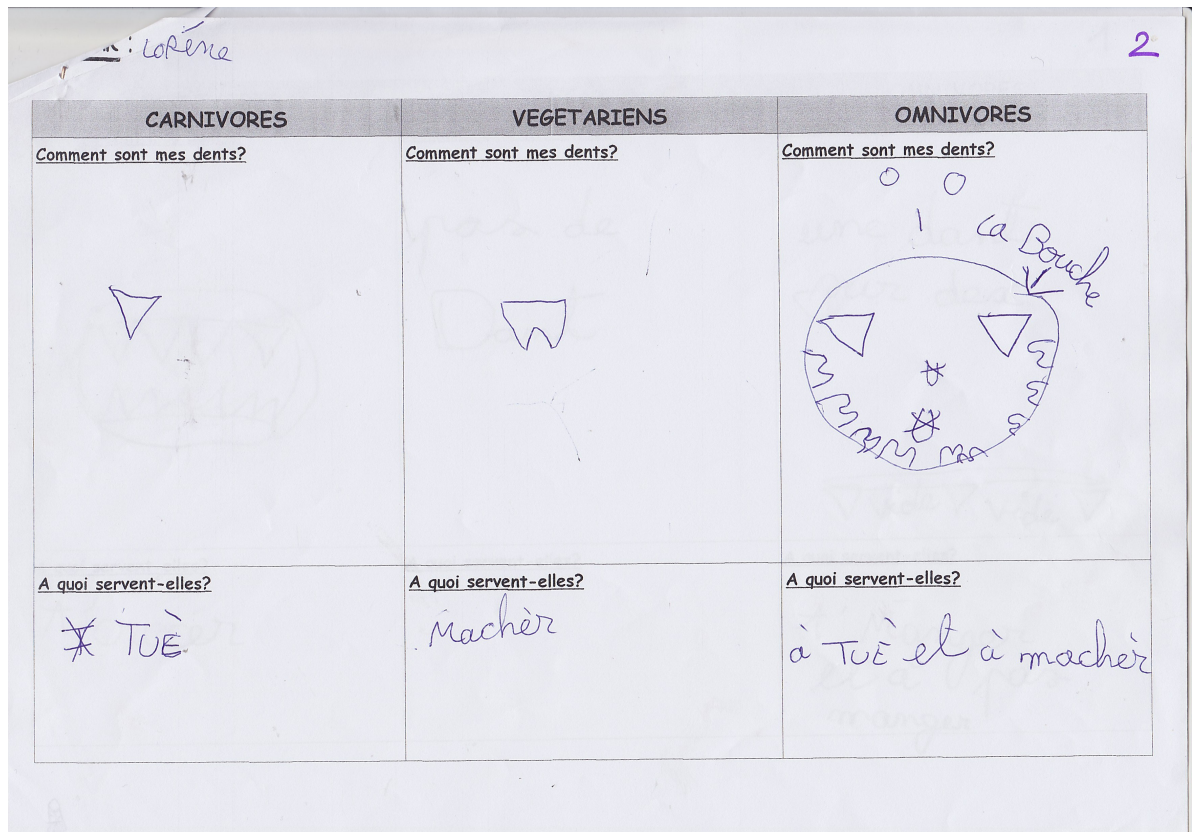 : LORÉNE
2
CARNIVORES
VEGETARIENS
OMNIVORES
Comment sont mes dents?
Comment sont mes dents?
Comment sont mes dents?
La Bouche
A quoi servent-elles?
A quoi servent-elles?
A quoi servent-elles?
TUÈ
Machèr
à TUÈ et à machèr